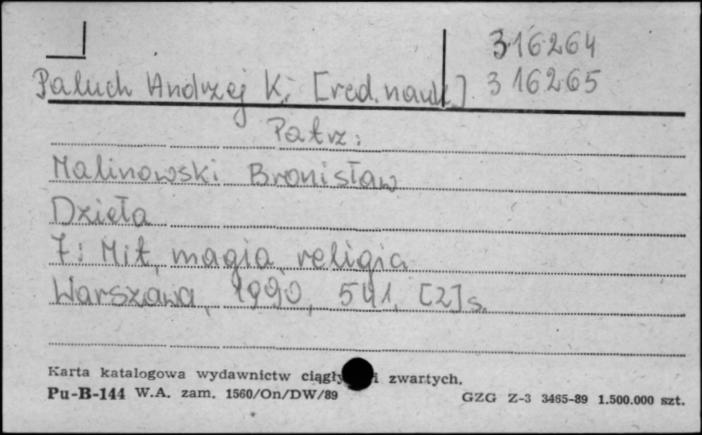 316264
Paluch Andrzej K. [red. nauk]. 316265
Patrz:
Malinowski Bronisław
Dzieła
7: Mit, magia, religia
Warszawa, 1990, 541, [2] s.
Karta katalogowa wydawnictw zwartych.
Pu-B-144 W.A. zam. 1560/On/DW/89 GZG Z-3 3465-89 1.500.000 szt.